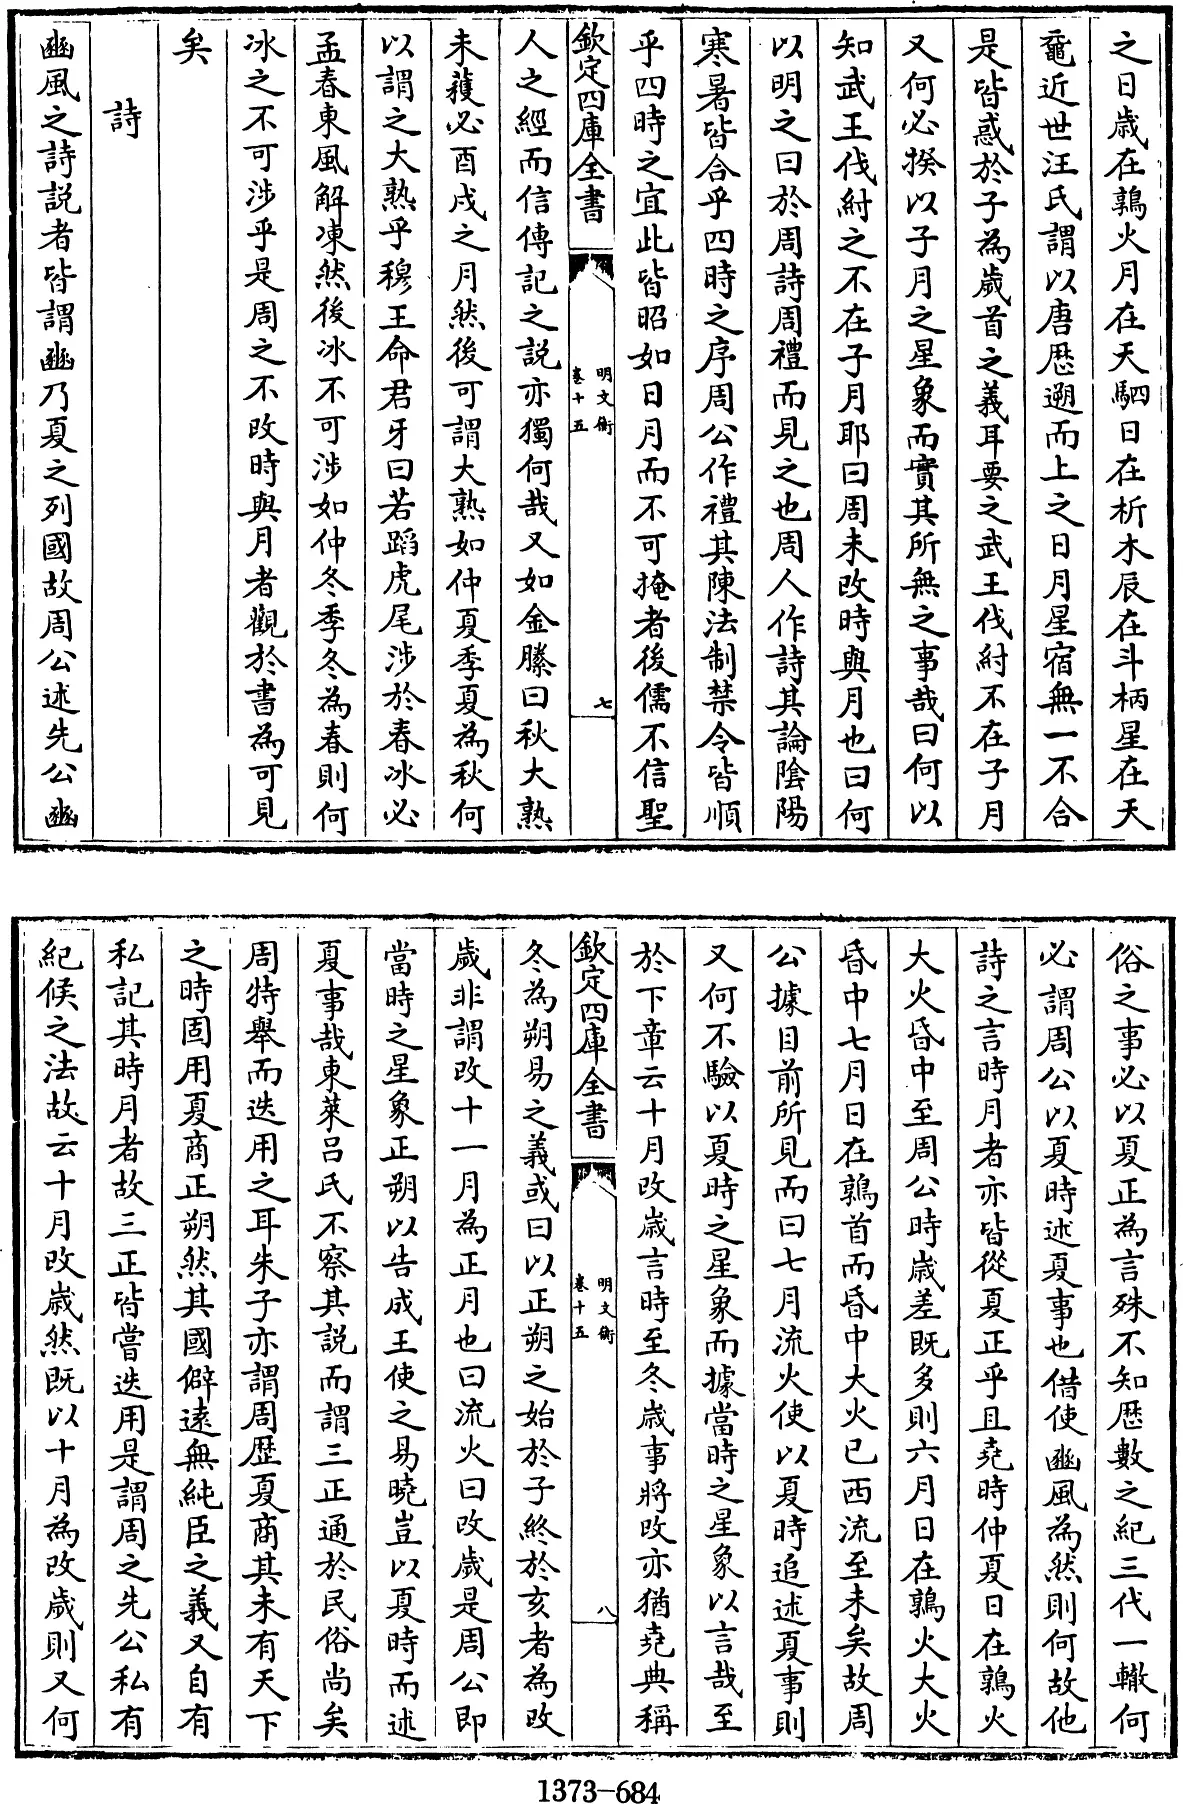 之日歳在鶉火月在天駟日在析木辰在斗柄星在天
黿近世汪氏謂以唐厯遡而上之日月星宿無一不合
是皆惑於子為歲首之義耳要之武王伐紂不在子月
又何必揆以子月之星象而實其所無之事哉曰何以
知武王伐紂之不在子月耶曰周未改時與月也曰何
以明之曰於周詩周禮而見之也周人作詩其論陰陽
寒暑皆合乎四時之序周公作禮其陳法制禁令皆順
乎四時之宜此皆昭如日月而不可掩者後儒不信聖
欽定四庫全書
明文衡
卷十五
七
人之經而信傳記之説亦獨何哉又如金縢曰秋大熟
未穫必酉戌之月然後可謂大熟如仲夏季夏為秋何
以謂之大熟乎穆王命君牙曰若蹈虎尾涉於春冰必
孟春東風解凍然後冰不可涉如仲冬季冬為春則何
冰之不可涉乎是周之不改時與月者觀於書為可見
矣
詩
豳風之詩説者皆謂豳乃夏之列國故周公述先公豳
俗之事必以夏正為言殊不知厯數之紀三代一轍何
必謂周公以夏時述夏事也借使豳風為然則何故他
詩之言時月者亦皆從夏正乎且堯時仲夏日在鶉火
大火昏中至周公時歳差既多則六月日在鶉火大火
昏中七月日在鶉首而昏中大火已西流至未矣故周
公據目前所見而曰七月流火使以夏時追述夏事則
又何不驗以夏時之星象而據當時之星象以言哉至
於下章云十月改歳言時至冬歳事將改亦猶堯典稱
欽定四庫全書
明文衡
卷十五
八
冬為朔易之義或曰以正朔之始於子終於亥者為改
歲非謂改十一月為正月也曰流火曰改歲是周公即
當時之星象正朔以告成王使之易曉豈以夏時而述
夏事哉東萊吕氏不察其説而謂三正通於民俗尚矣
周特舉而迭用之耳朱子亦謂周歴夏商其未有天下
之時固用夏商正朔然其國僻遠無純臣之義又自有
私記其時月者故三正皆嘗迭用是謂周之先公私有
紀候之法故云十月改歲然既以十月為改歲則又何
1373-684